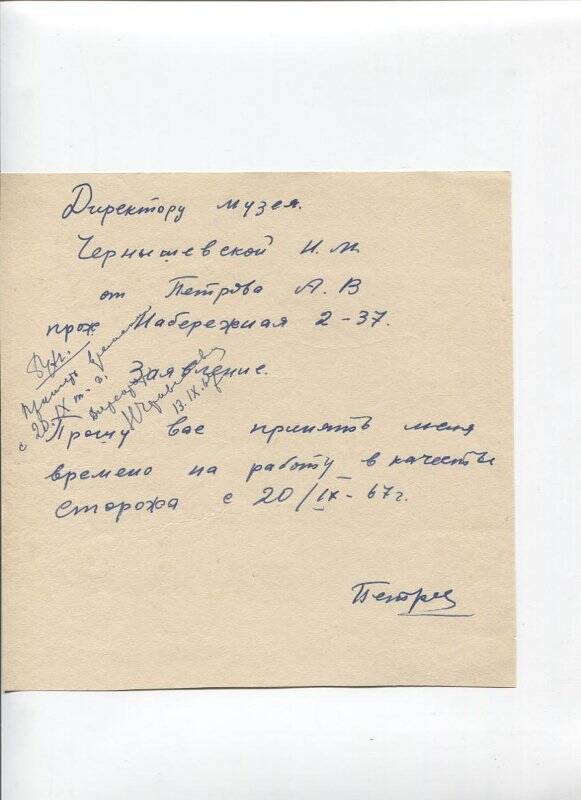 Директору музея.
Чернышевской Н.М
от Петрова А.В
прож Набережная 2-37.
Заявление.
Прошу вас принять меня
времено на работу в качестве
сторожа с 20/IX-67г.
Принять временно
с 20.IX т.г.
Директор
13.IX.67
Петров